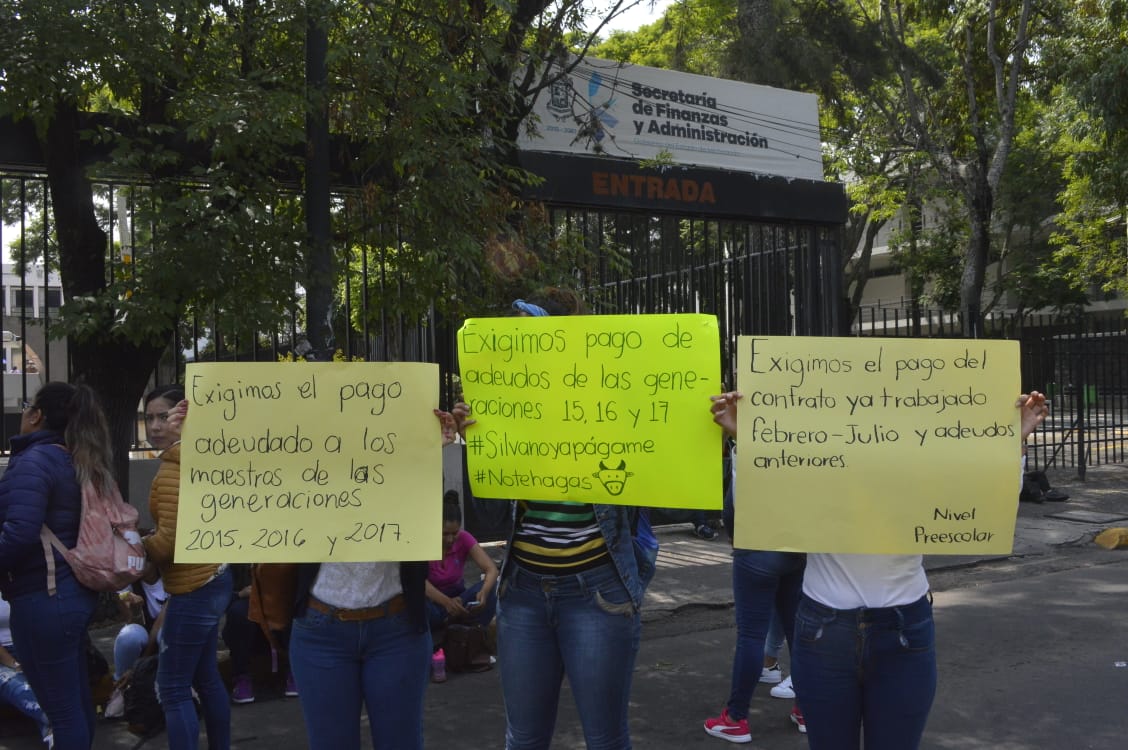 Secretaría
de Finanzas
y Administración
ENTRADA
Exigimos el pago
adeudado a los
maestros de las
generaciones
2015, 2016 y 2017.
Exigimos pago de
adeudos de las gene-
raciones 15, 16 y 17
#Silvanoyapágame
#Notehagas
Exigimos el pago del
contrato ya trabajado
febrero-Julio y adeudos
anteriores.
Nivel
Preescolar